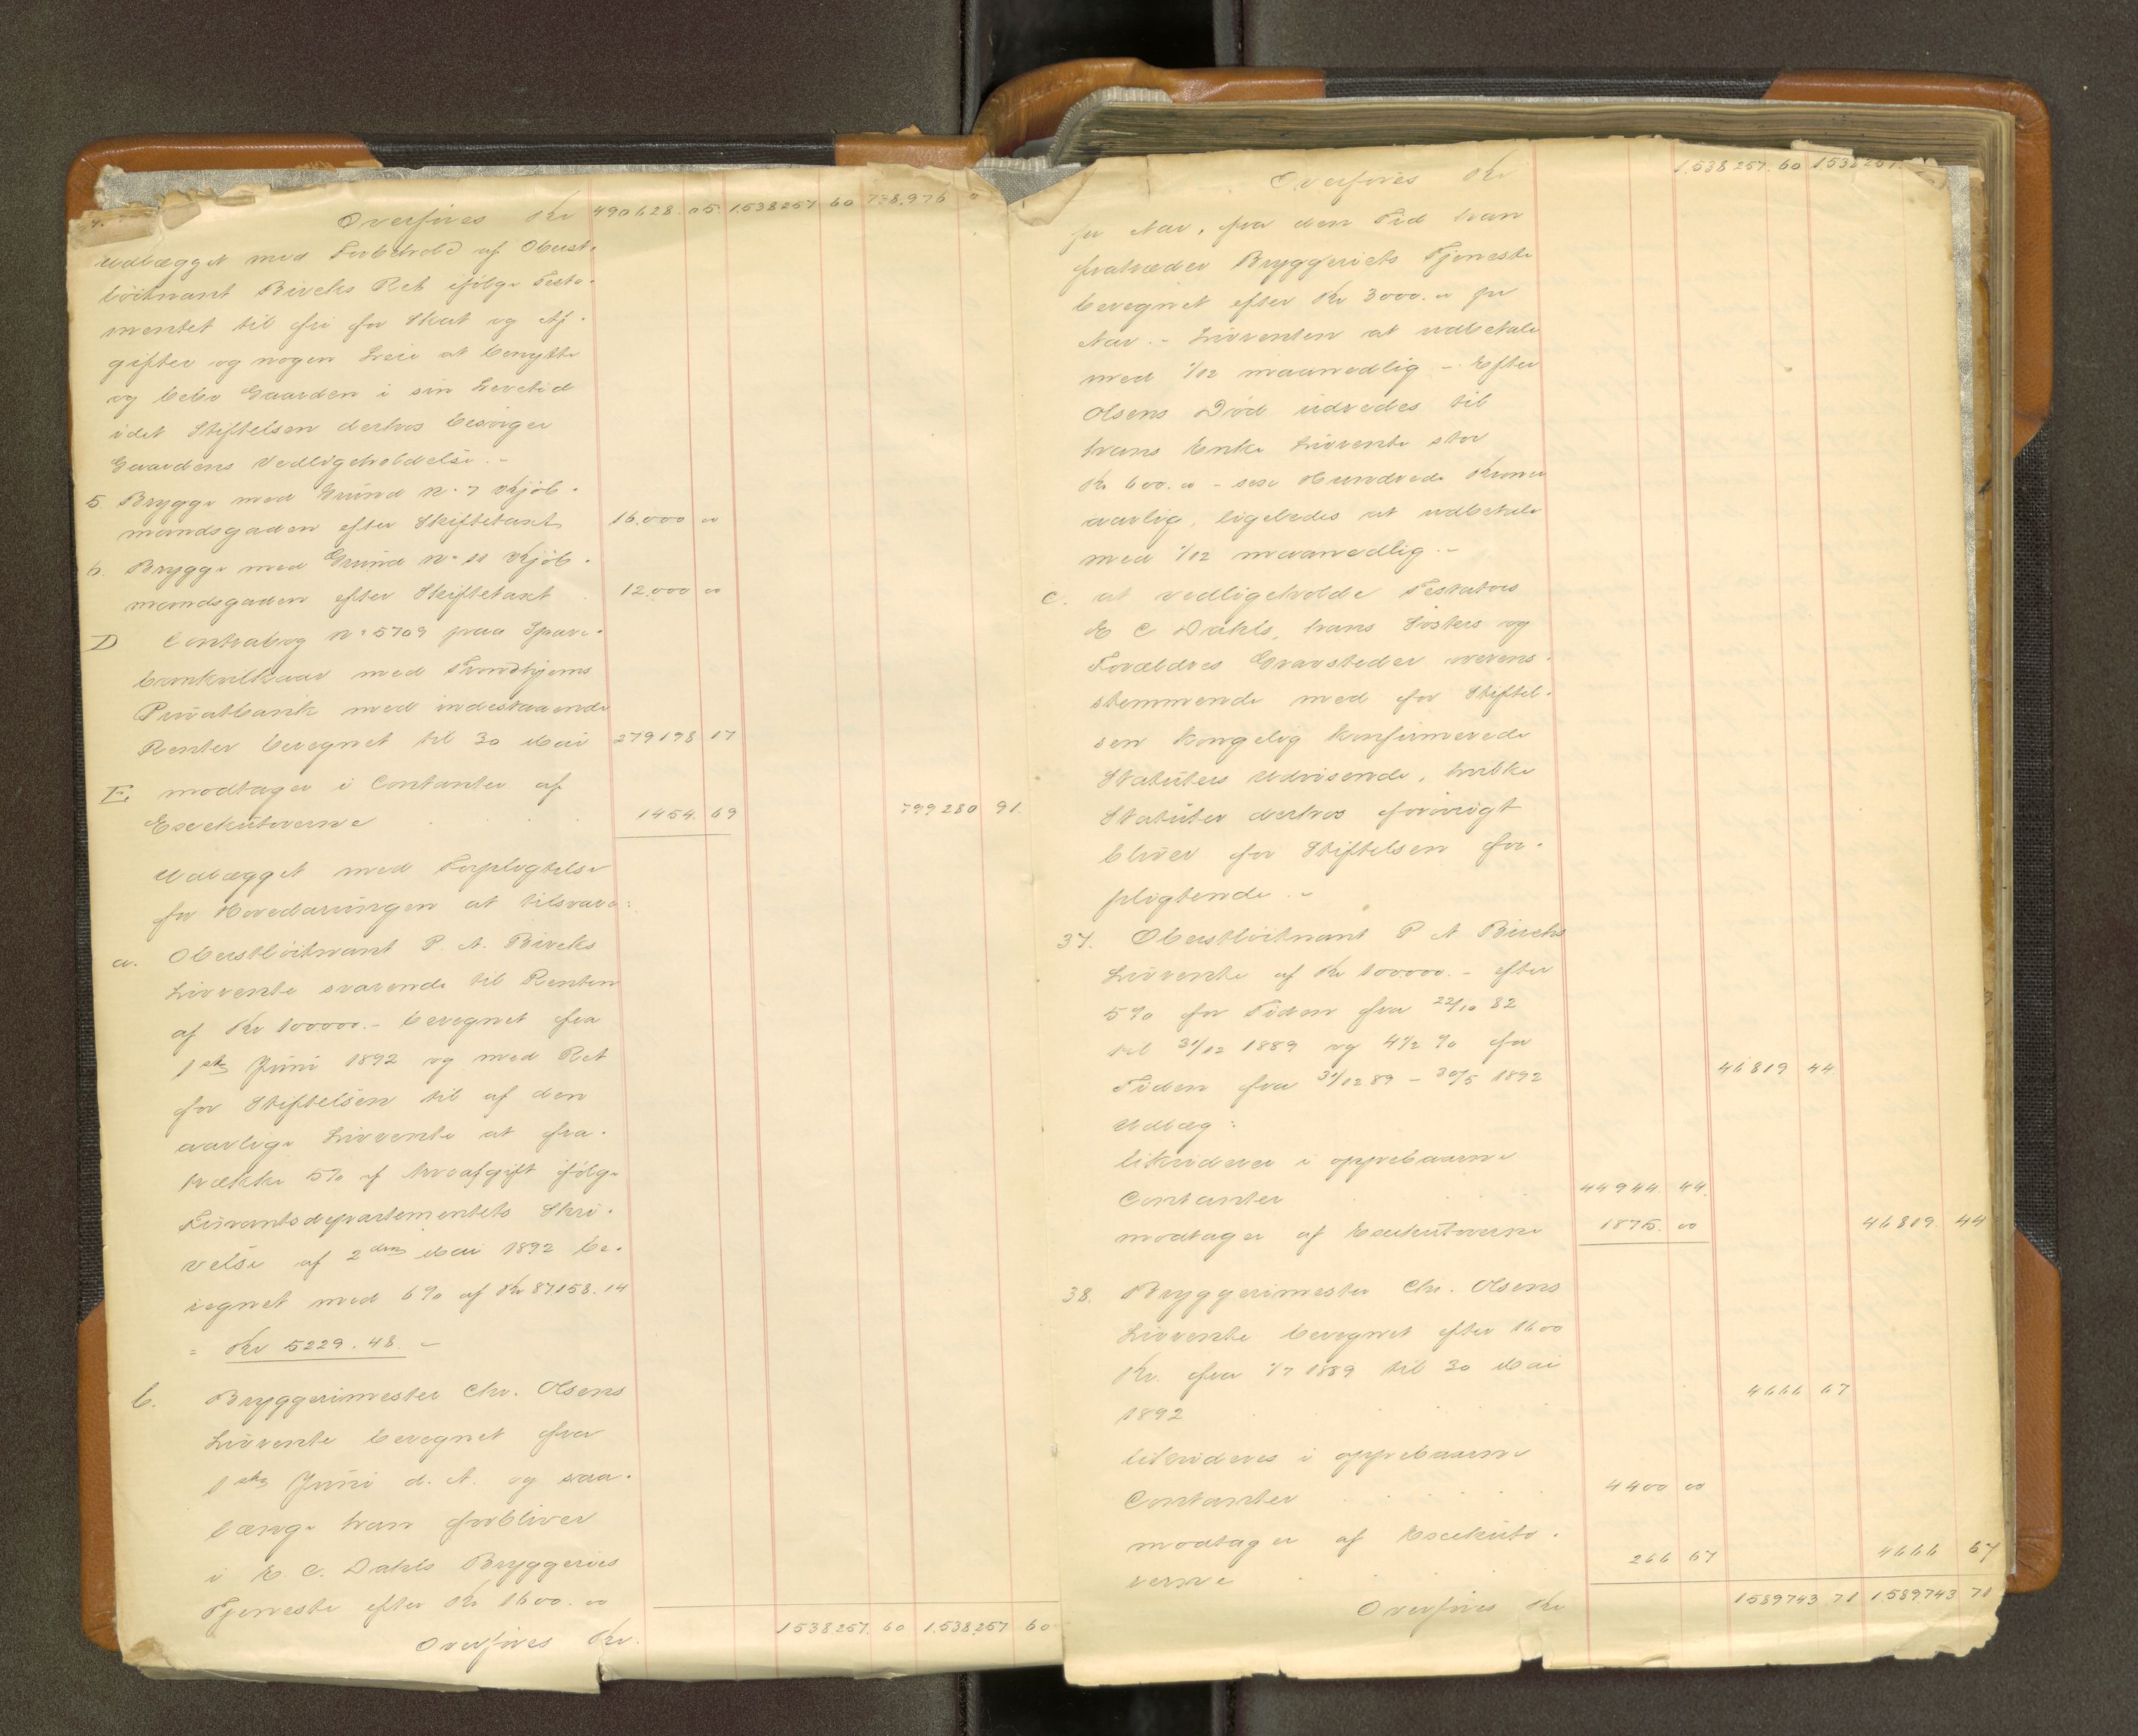 Overføres Kr 490628.05. 1.538257 60 738.976
4.
Udlægget med Forbehold af Oberst-
löitnant Bircks Ret ifölge Testa-
mentet til fri for Skat og Af-
gifter og nogen Leie at benytte
og bebo Gaarden i sin Levetid
idet Stiftelsen derhos besörger
Gaardens Vedligeholdelse.-
5 Brygge med Grund No 7 Kjöb-
mandsgaden efter Skiftetaxt 16.000 00
6. Brygge med Grund No 11 Kjöb-
mandsgaden efter Skiftetaxt 12.000 00
D Contrabog No 5709 paa Spare-
bankvilkaar med Trondhjems
Privatbank med indestaaende
Renter beregnet til 30 Mai 279198 17
E. modtager i Contanter af
Exekutorerne 1454. 69 799280 91.
Udlægget med Forpligtelse
for Hovedarvingen at tilsvare:
a. Oberstlöitnant P. A. Bircks
Livrente svarende til Renten
af Kr 100000.- beregnet fra
1ste Juni 1892 og med Ret
for Stiftelsen til af den
aarlige Livrente at fra-
trække 5% af Arveafgift ifölge
Finantsdepartementets Skri-
velse af 2den Mai 1892 be-
regnet med 6% af Kr 87158.14
= Kr 5229.48 -
b. Bryggerimester Chr. Olsens
Livrente beregnet fra
1ste Juni d. A. og saa-
længe han forbliver
i E. C. Dahls Bryggeries
Tjeneste efter Kr 1600.00
Overföres Kr. 1538257. 60 1.538.257 60
Overföres Kr 1.538 257. 60 1.538257.
pr Aar, fra den Tid han
fratræder Bryggeriets Tjeneste
beregnet efter Kr 3000.00 pr
Aar.- Livrenten at udbetale
med 1/12 maanedlig - Efter
Olsens Död udredes til
hans Enke Livrente stor
Kr 600.00 - sex Hundrede Kroner
aarlig, ligeledes at udbetale
med 1/12 maanedlig.-
c. at vedligeholde Testators
E C Dahls, hans Søsters og
Forældres Gravsteder overens-
stemmende med for Stiftel-
sen kongelig konfirmerede
Statuters Udvisende, hvilke
Statuter derhos forøvrigt
bliver for Stiftelsen for-
pligtende.-
37. Oberstlöitnant P A Bircks
Livrente af Kr 100000.- efter
5% for Tiden fra 22/10 82
til 31/12 1889 og 4 1/2 % for
Tiden fra 31/12 89 - 30/5 1892 46819 44
Udlæg:
likviderer i oppebaarne
Contanter 44944. 44.
modtager af Exekutorerne 1875. 00 46819. 44
38. Bryggerimester Chr. Olsens
Livrente beregnet efter 1600
Kr. fra 1/7 1889 til 30 Mai
1892 4666 67
likvideres i oppebaarne
Contanter 4400 00
modtager af Exekuto-
rerne 266 67 4666 67
Overføres Kr 1589743 71 1.589743 71